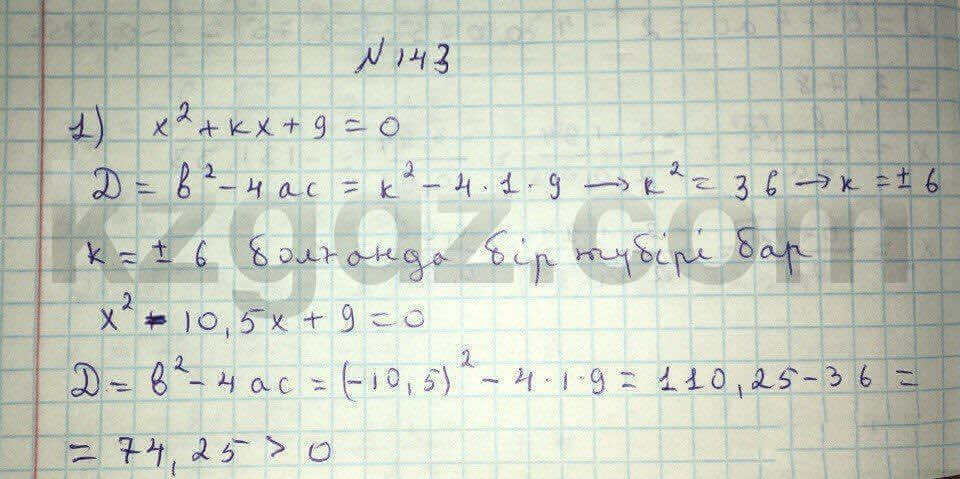 N 143
1) x² + кx + 9 = 0
D = в² - 4ac = к² - 4·1·9 → к² = 36 → к = ± 6
к = ± 6 болғанда бір түбірі бар
x² - 10,5x + 9 = 0
D = в² - 4ac = (-10,5)² - 4·1·9 = 110,25 - 36 =
= 74,25 > 0
kzgdz.com